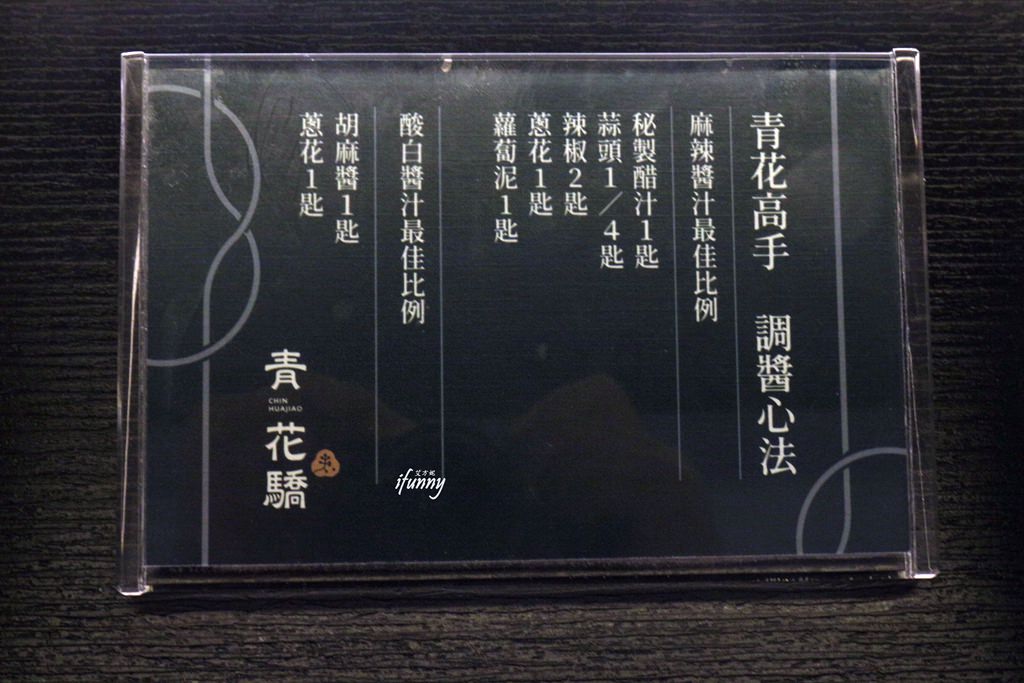 青花高手 調醬心法
麻辣醬汁最佳比例
秘製醋汁1匙
蒜頭1／4匙
辣椒2匙
蔥花1匙
蘿蔔泥1匙
酸白醬汁最佳比例
胡麻醬1匙
蔥花1匙
青花驕
CHIN
HUAJIAO
艾方妮
ifunny